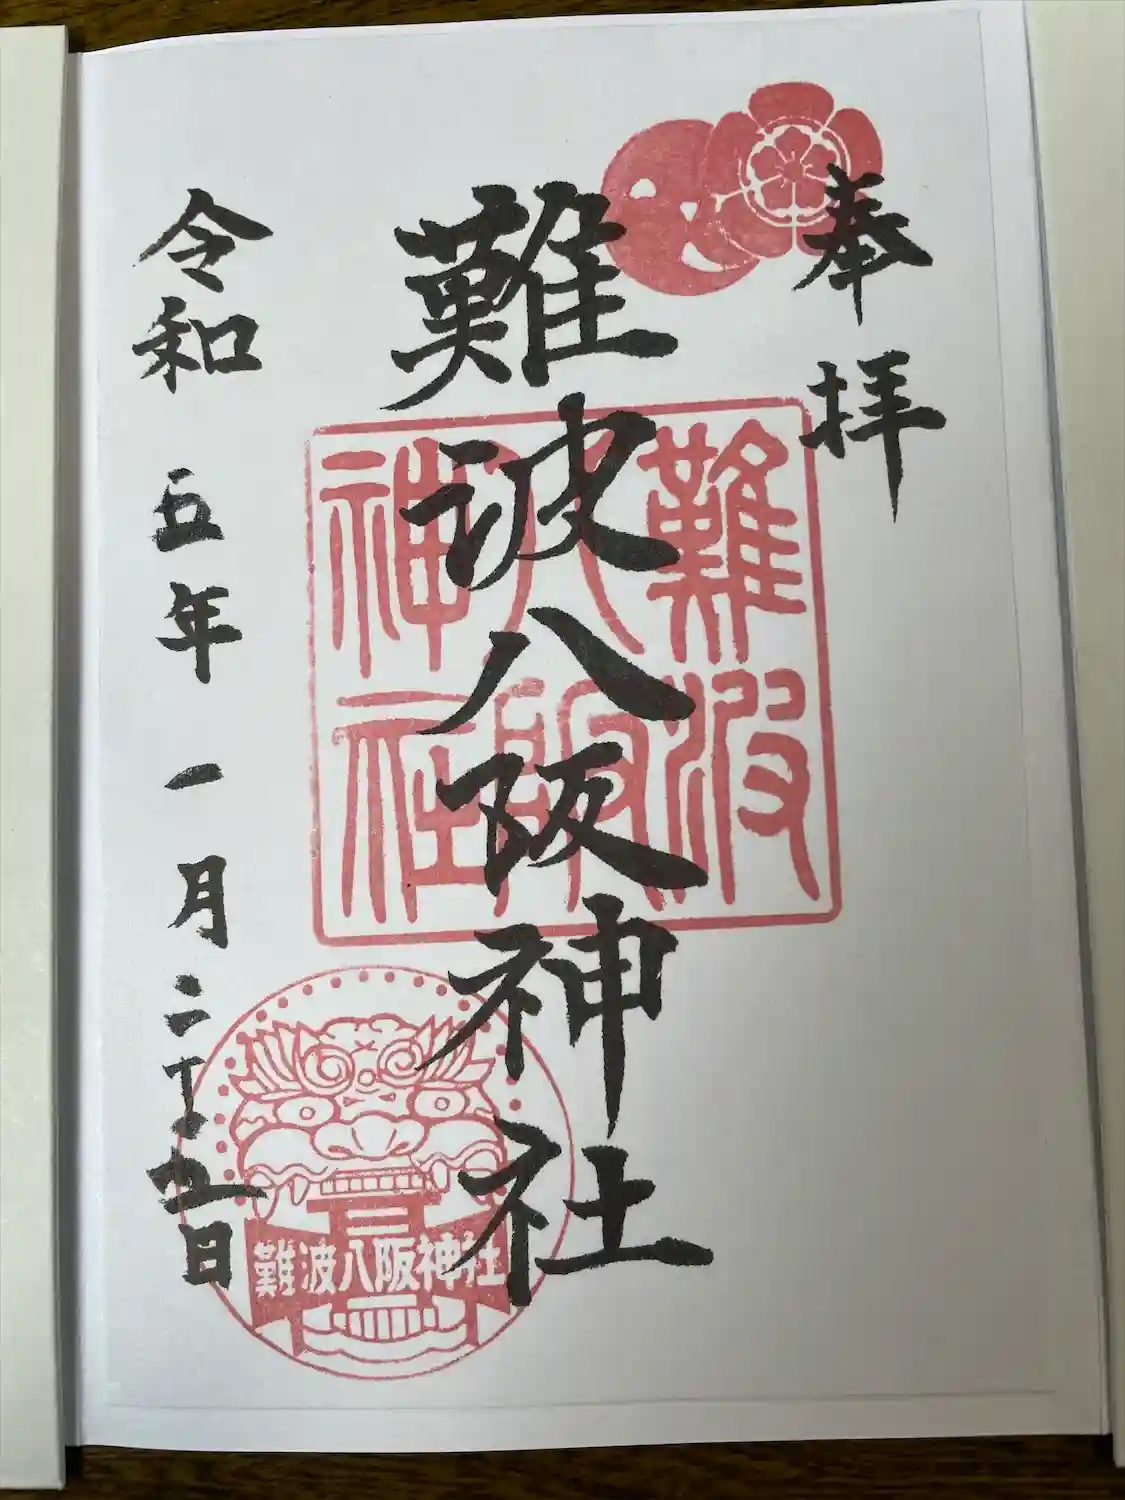 奉拝
難波八阪神社
難波
八阪
神社
難波八阪神社
令和五年一月二十九日